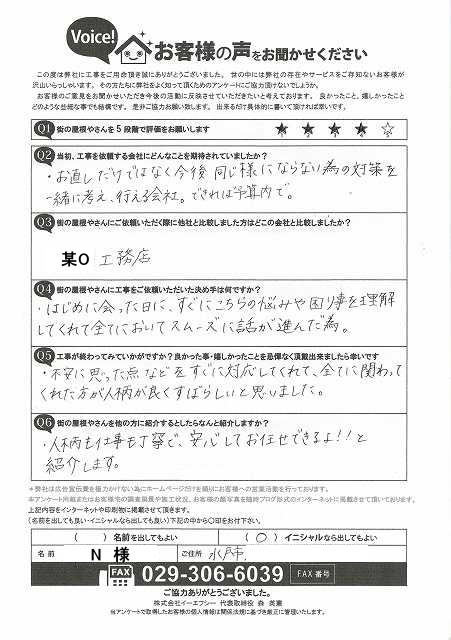 Voice!
お客様の声をお聞かせください
この度は弊社に工事をご用命頂き誠にありがとうございました。世の中には弊社の存在やサービスをご存知ないお客様が
沢山いらっしゃいます。その方たちに弊社をよく知って頂くためのアンケートにご協力頂けないでしょうか。
お客様のご意見をお聞かせいただき今後の活動に反映させていただきたいと考えております。良かったこと、嬉しかったこと
どのような些細な事でも結構です。是非ご協力お願い致します。出来るだけ具体的に書いて頂ければ幸いです。
Q1 街の屋根やさんを5段階で評価をお願いします ★ ★ ★ ★ ☆
Q2 当初、工事を依頼する会社にどんなことを期待されていましたか?
・お直しだけではなく今後同じ様にならない為の対策を
一緒に考え、行える会社。できれば予算内で。
Q3 街の屋根やさんにご依頼いただく際に他社と比較しました方はどこの会社と比較しましたか?
某O 工務店
Q4 街の屋根やさんに工事をご依頼いただいた決め手は何ですか?
・はじめに会った日に、すぐにこちらの悩みや困り事を理解
してくれて全てにおいてスムーズに話が進んだ為。
Q5 工事が終わってみていかがですか?良かった事・嬉しかったことを忌憚なく頂戴出来ましたら幸いです
・不安に思った点などをすぐに対応してくれて、全てに関わって
くれた方が人柄が良くすばらしいと思いました。
Q6 街の屋根やさんを他の方に紹介するとしたらなんと紹介しますか?
・人柄も仕事も丁寧で、安心してお任せできるよ!!と
紹介します。
*弊社は広告宣伝費を極力かけない為にホームページだけを頼りにお客様への営業活動を行っております。
本アンケート用紙またはお客様宅の調査風景や施工状況、お客様の顔写真を随時ブログ形式のインターネットに掲載させて頂いております。
上記内容をインターネットや印刷物に掲載させて頂きます。
(名前を出しても良い・イニシャルなら出しても良い)下記の中から〇印をお付下さい。
( ) 名前を出してもよい ( ○ ) イニシャルなら出してもよい
名前 N 様 ご住所 水戸市
FAX 029-306-6039 FAX番号
ご協力ありがとうございました。
株式会社イーエフシー 代表取締役 森 美憲
当アンケートで取得したお客様の個人情報は関係法規に基づき厳正に管理いたします。